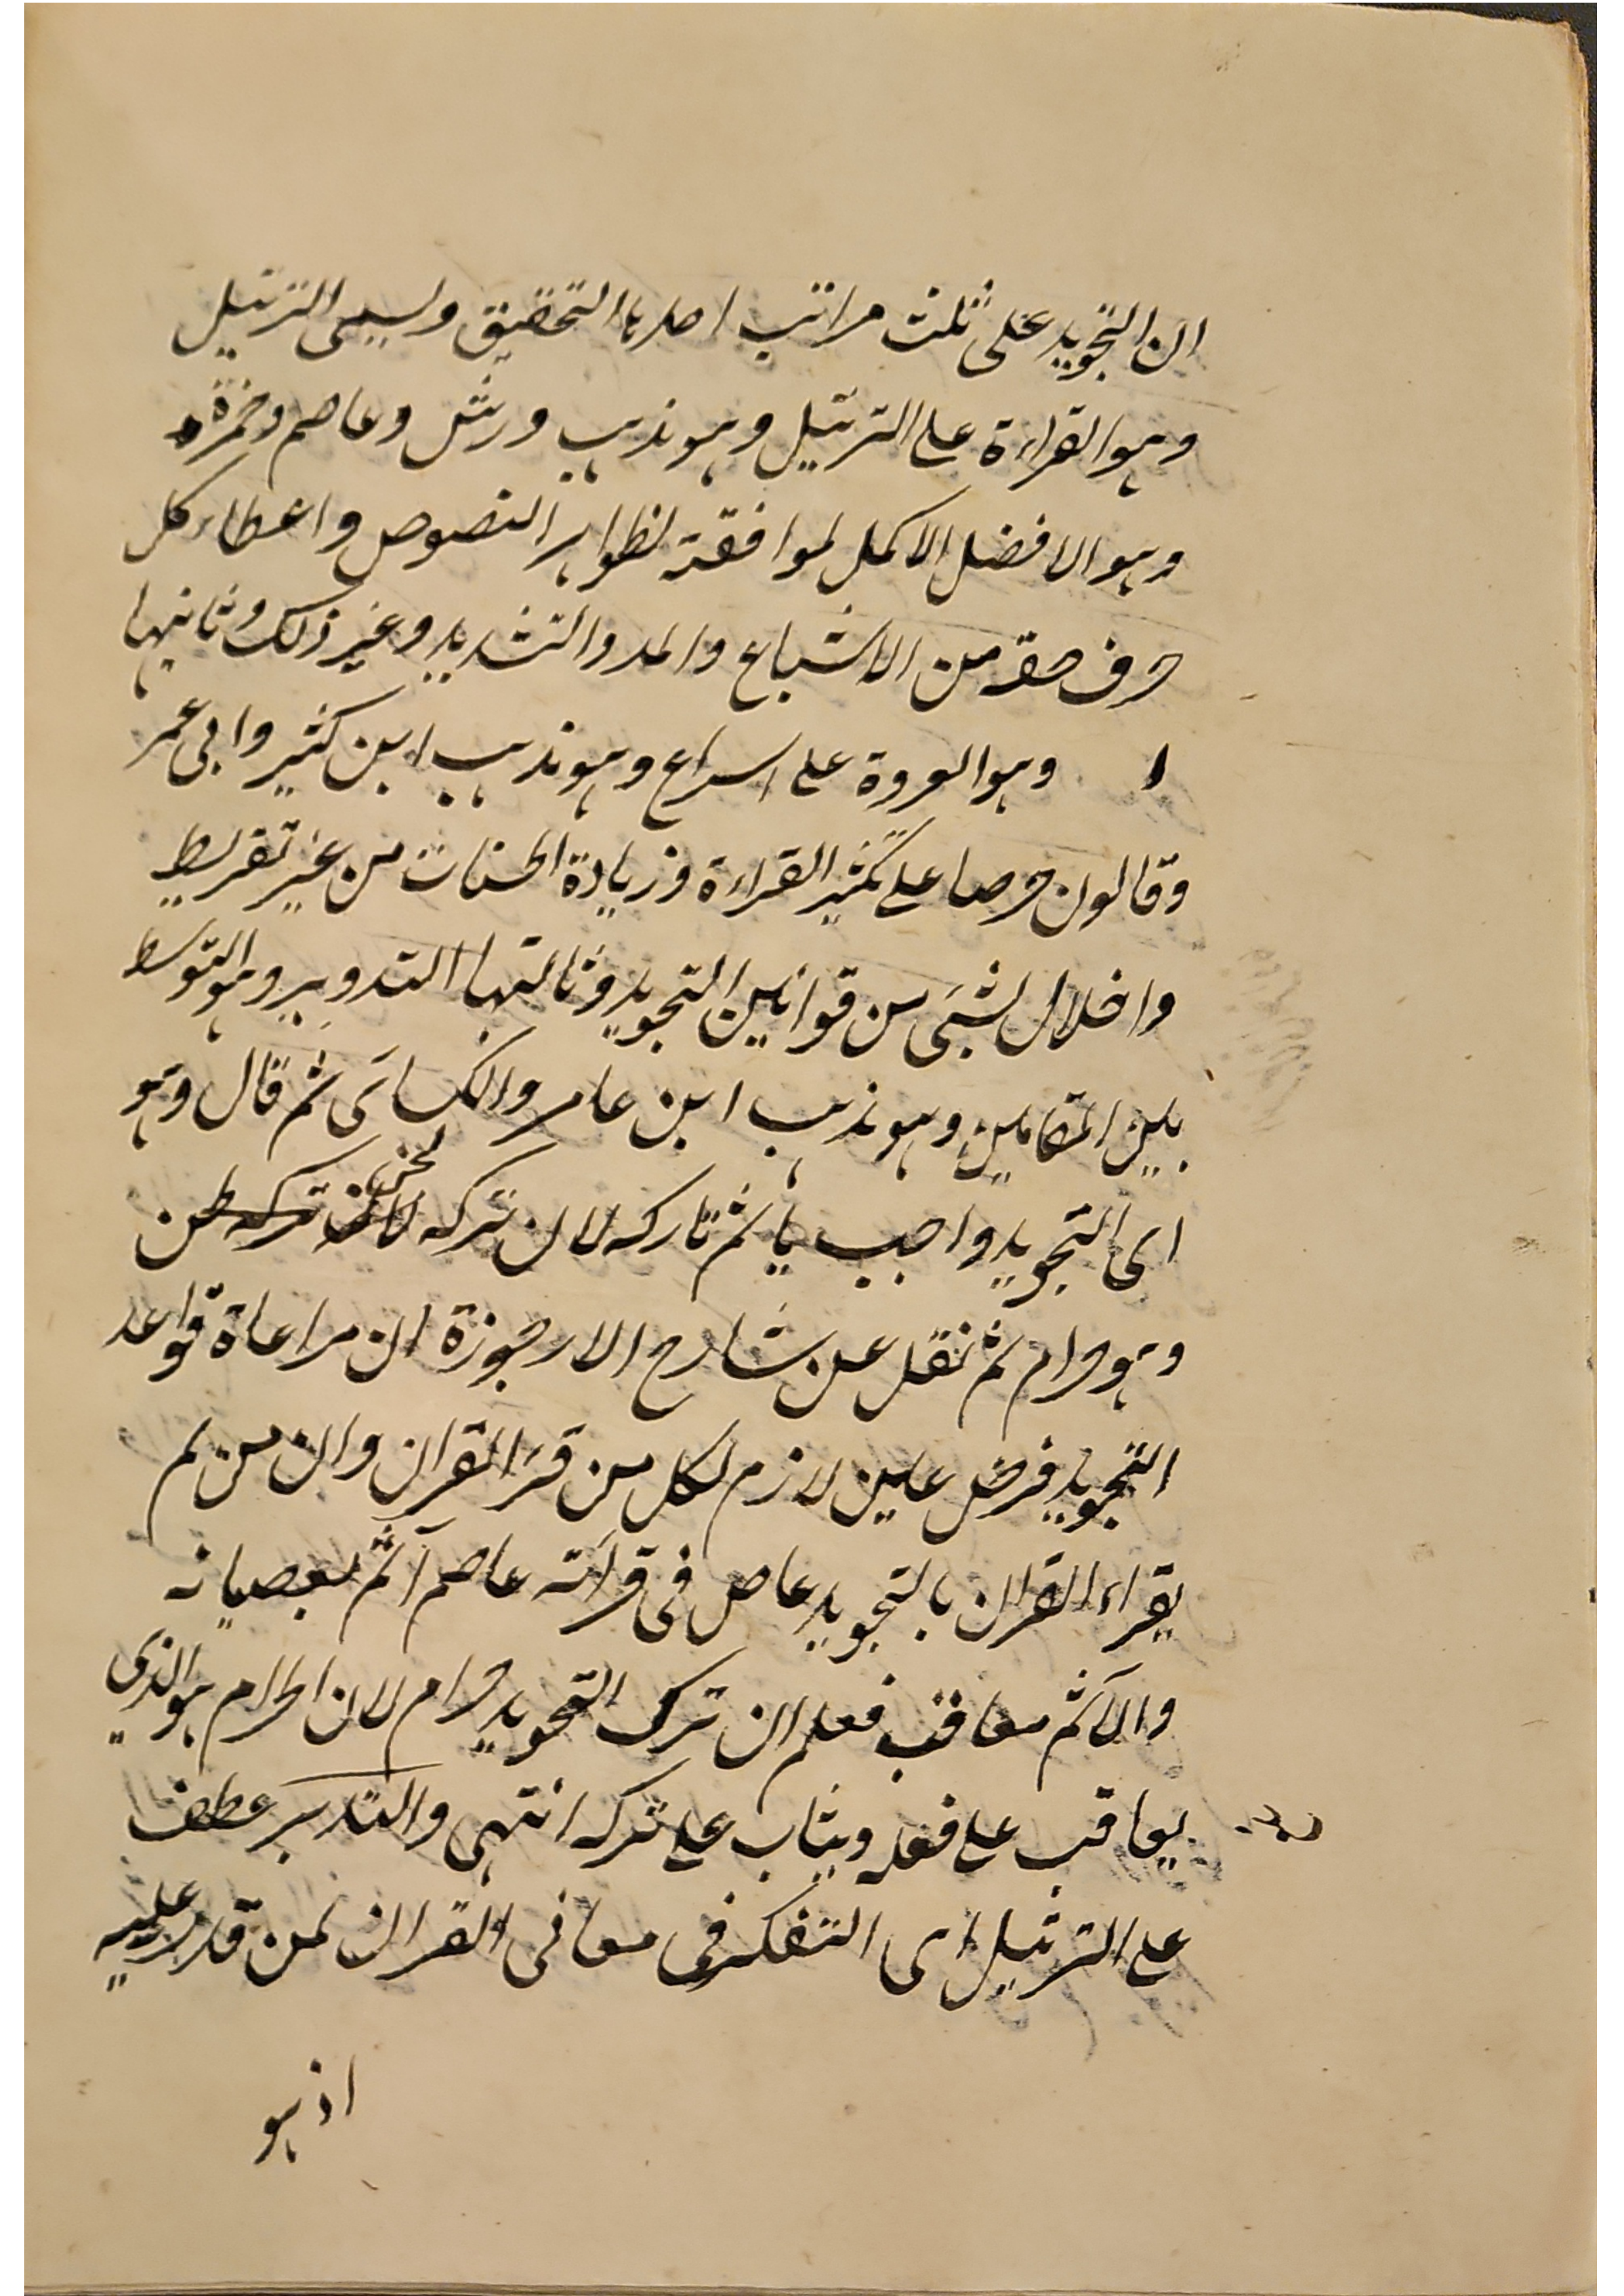 ان التجويد على ثلث مراتب احدیها التحقيق ويسمى الترتيل
وهو القراءة على الترتيل وهو مذهب ورش وعاصم وحمزة
وهو الافضل الاكمل لموافقة لظواهر النصوص واعطاء كل
حرف حقه من الاشباع والمد والتشديد وغير ذلك وثانيها
ا وهو العروة على اسراع وهو مذهب ابن كثير وابى عمر
وقالون حرصا على تكثير القراءة وزيادة الحسنات من غير تفريط
واخلال لشئ من قوانين التجويد وثالثها التدوير وهو التوسط
بين المقامين وهو مذهب ابن عامر والكسائى ثم قال وهو
اى التجويد واجب ياثم تاركه لان تركه لحن
وهو حرام ثم نقل عن شارح الارجوزة ان مراعاة قواعد
التجويد فرض عين لازم لكل من قرأ القران وان من لم
يقراء القران بالتجويد عاص فى قرآته عاصم آثم بعصيانه
والآثم معاقب فعلم ان ترك التجويد حرام لان الحرام هو الذي
يعاقب على فعله ويثاب على تركه انتهى والتدبر عطف
على الترتيل اى التفكر فى معانى القران لمن قدر عليه
اذ هو